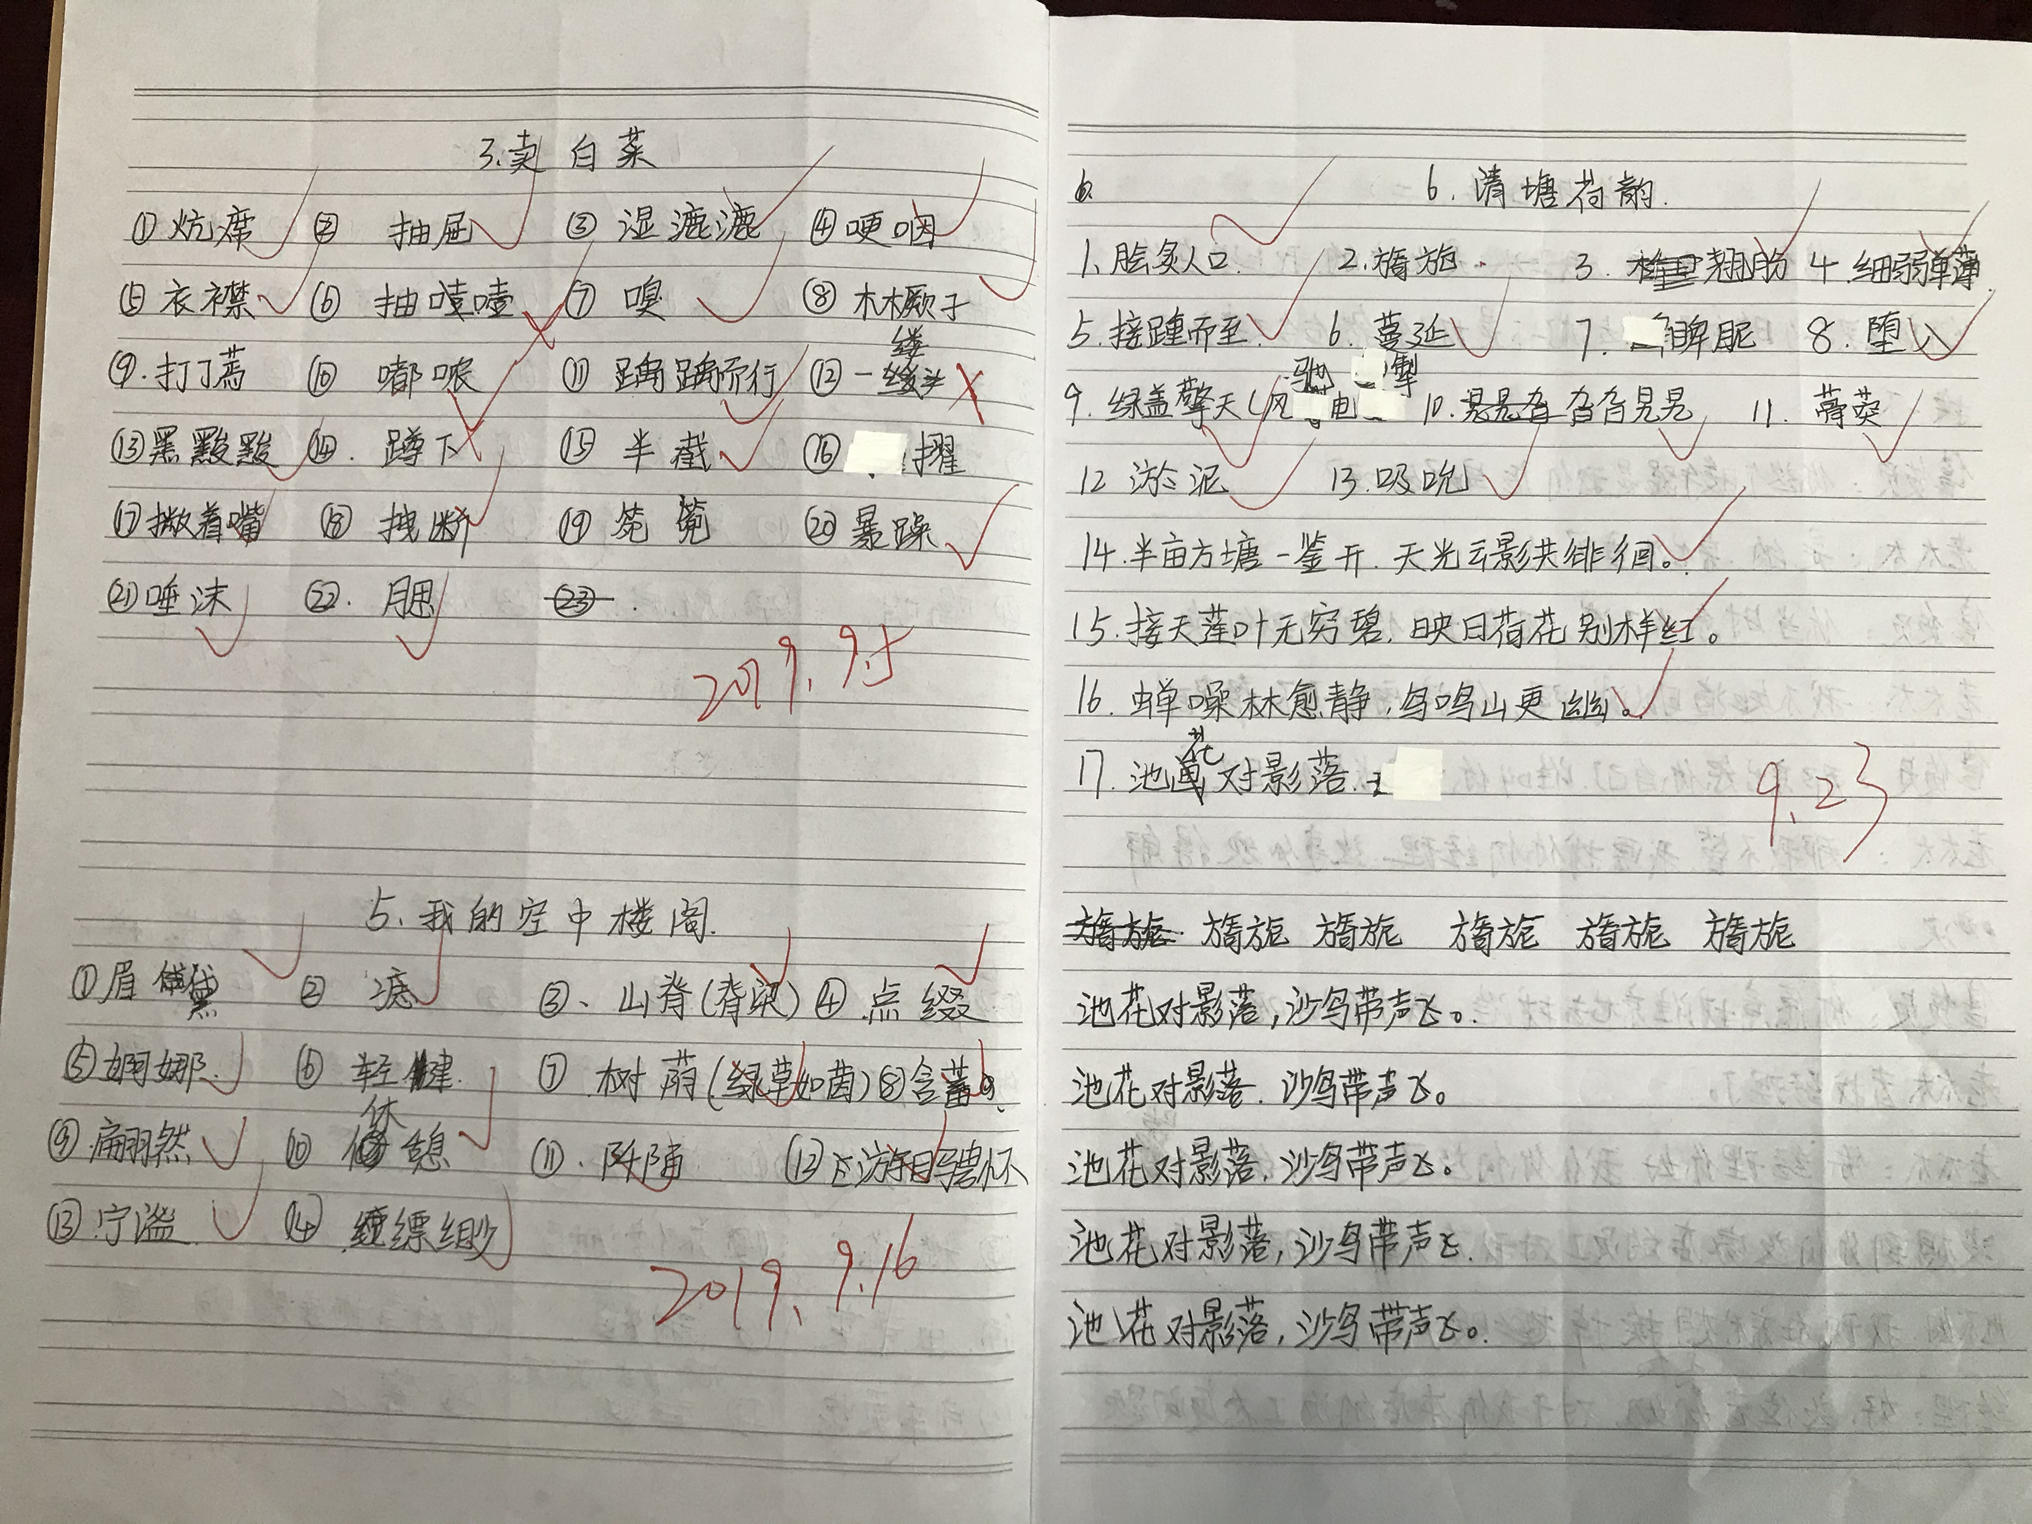 3.卖白菜
①炕席 ② 抽屉 ③ 湿漉漉 ④哽咽
⑤衣襟 ⑥ 抽噎噎 ⑦ 嗅 ⑧ 木橛子
缕
⑨.打了蔫 ⑩ 嘟哝 ⑪ 踽踽而行 ⑫一头
⑬黑黢黢 ⑭. 蹲下 ⑮ 半截 ⑯ 擢
⑰撇着嘴 ⑱ 拽断 ⑲ 筅篼 ⑳暴躁
㉑唾沫 ㉒. 腮 ㉓ .
2019.9.5
5.我的空中楼阁.
①眉黛 ② ③、山脊(脊梁) ④.点缀
⑤婀娜. ⑥ 轻健. ⑦.树荫(绿草如茵) ⑧含蓄
休
⑨.翩然 ⑩ 憩 ⑪. ⑫游目骋怀
⑬.宁谧. ⑭.缥缈
2019.9.16
6. 6.清塘荷韵.
1、脍炙人口. 2.旖旎. 3. 翘盼 4.细弱单薄
5.接踵而至. 6.蔓延 7. 睥昵 8.堕入
驰 掣
9.绿盖擎天(风 电 10. 杳杳晃晃 11. 菁葵
12 淤泥 13.吸吮
14.半亩方塘一鉴开.天光云影共徘徊。
15.接天莲叶无穷碧.映日荷花别样红。
16.蝉噪林愈静,鸟鸣山更幽。
花
17.池 对影落.
9.23
旖旎 旖旎 旖旎 旖旎 旖旎 旖旎
池花对影落,沙鸟带声飞。
池花对影落.沙鸟带声飞。
池花对影落,沙鸟带声飞。
池花对影落,沙鸟带声飞.
池花对影落,沙鸟带声飞。